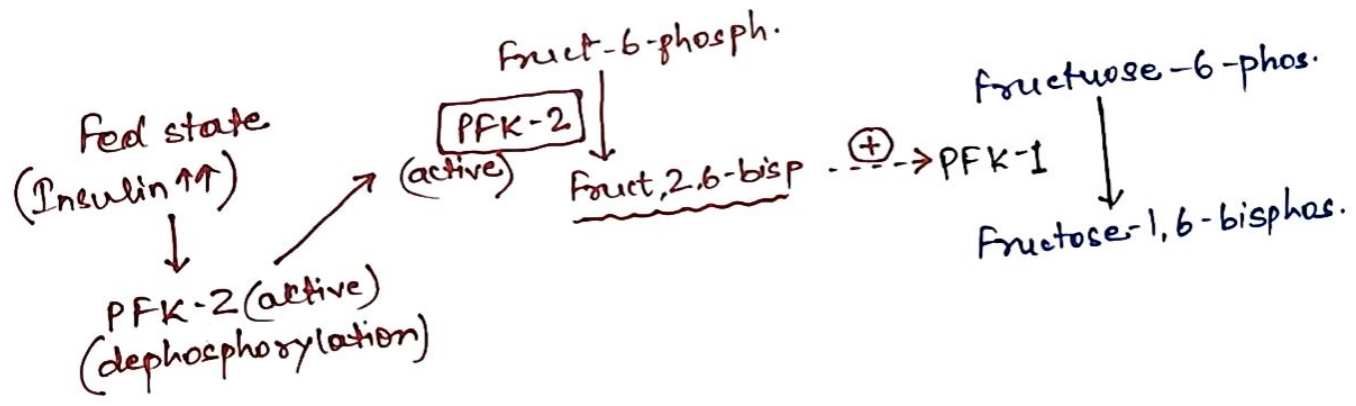 Fed state
(Insulin ↑↑)
PFK-2 (active)
(dephosphorylation)
Fruct-6-phosph.
PFK-2
(active)
Fruct,2,6-bisp
(+)
PFK-1
fructuose-6-phos.
Fructose-1,6-bisphos.